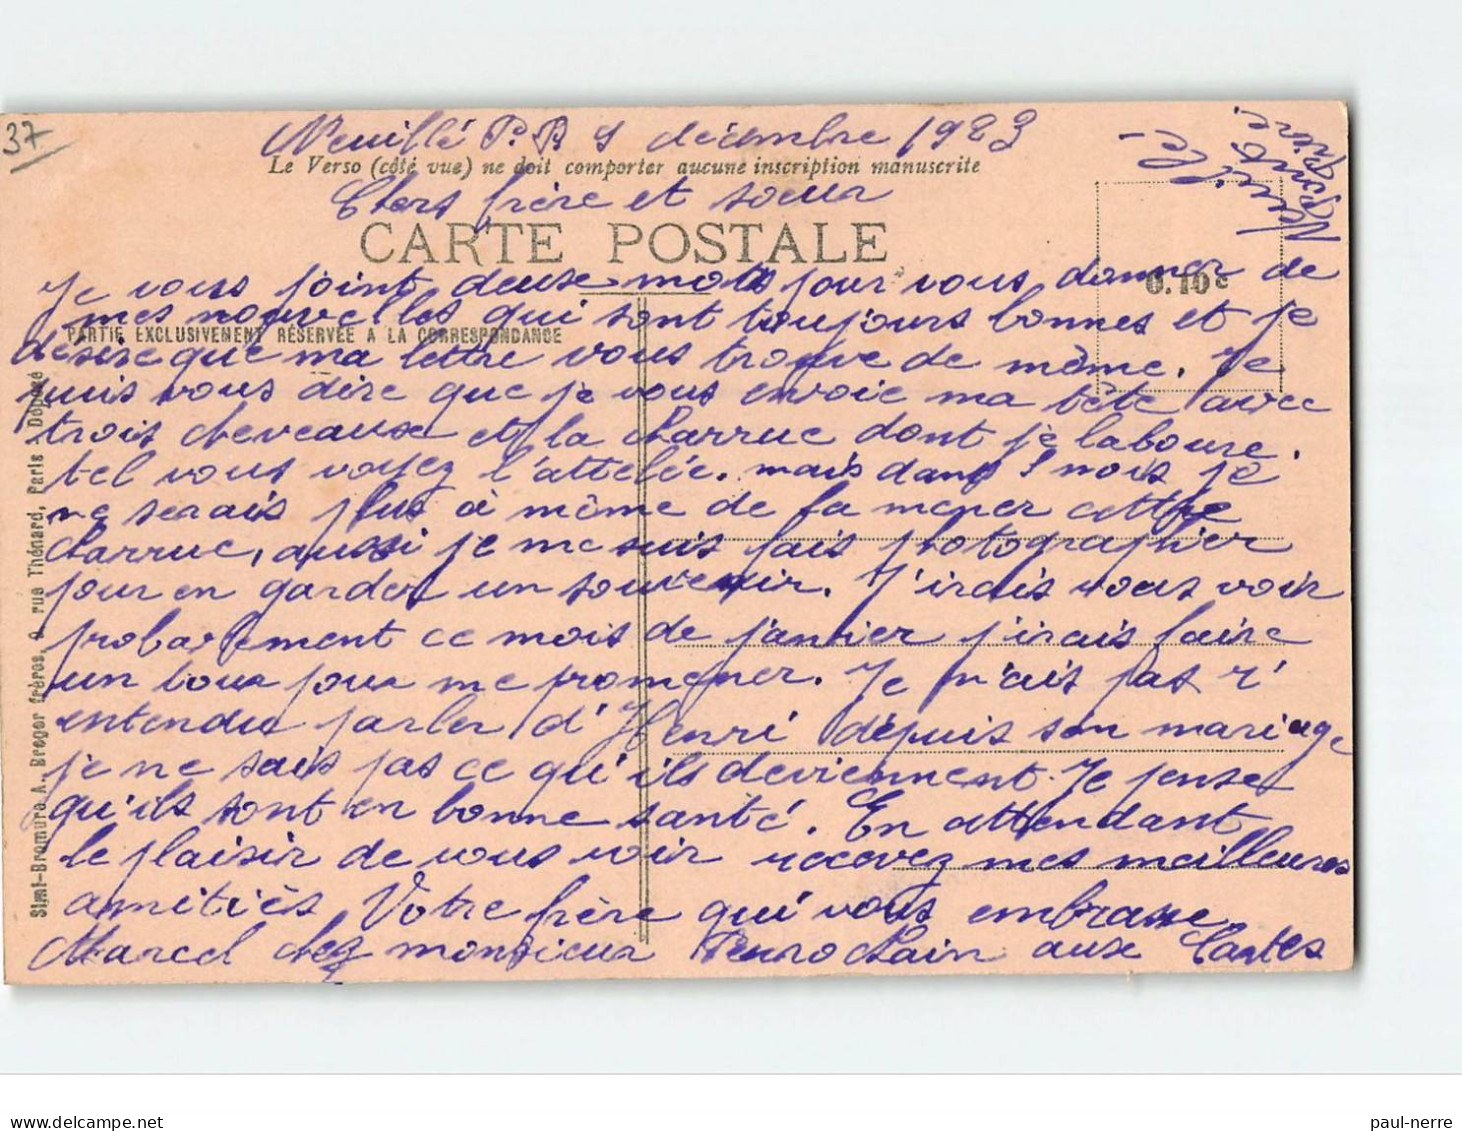 37
Neuillé P. P. 9 décembre 1923
Le Verso (côté vue) ne doit comporter aucune inscription manuscrite
Chers frère et soeur
CARTE POSTALE
0.10 c
Neuillé
Pont
Pierre
PARTIE EXCLUSIVEMENT RÉSERVÉE A LA CORRESPONDANCE
Je vous joint deuse mots pour vous donner de
mes nouvelles qui sont toujours bonnes et je
désire que ma lettre vous trouve de même. Je
puis vous dire que je vous envoie ma tête avec
trois cheveause et la charrue dont je laboure.
tel vous voyez l'attelée. mais dans 1 mois je
ne serais plus à même de la mener cette
charrue, aussi je me suis fais photographier
pour en garder un souvenir. J'irais vous voir
probarlement ce mois de janvier j'irais faire
un tour pour me promener. Je n'ais pas r'
entendu parler d'Henri dépuis son mariage
je ne sais pas ce qu'ils deviennent. Je pense
qu'ils sont en bonne santé. En attendant
le plaisir de vous voir recevez mes meilleures
amitiés Votre frère qui vous embrasse
Marcel chez monsieur aux
Simi-Bromure A. Breger frères, 9, rue Thénard, Paris - Déposé
paul-nerre